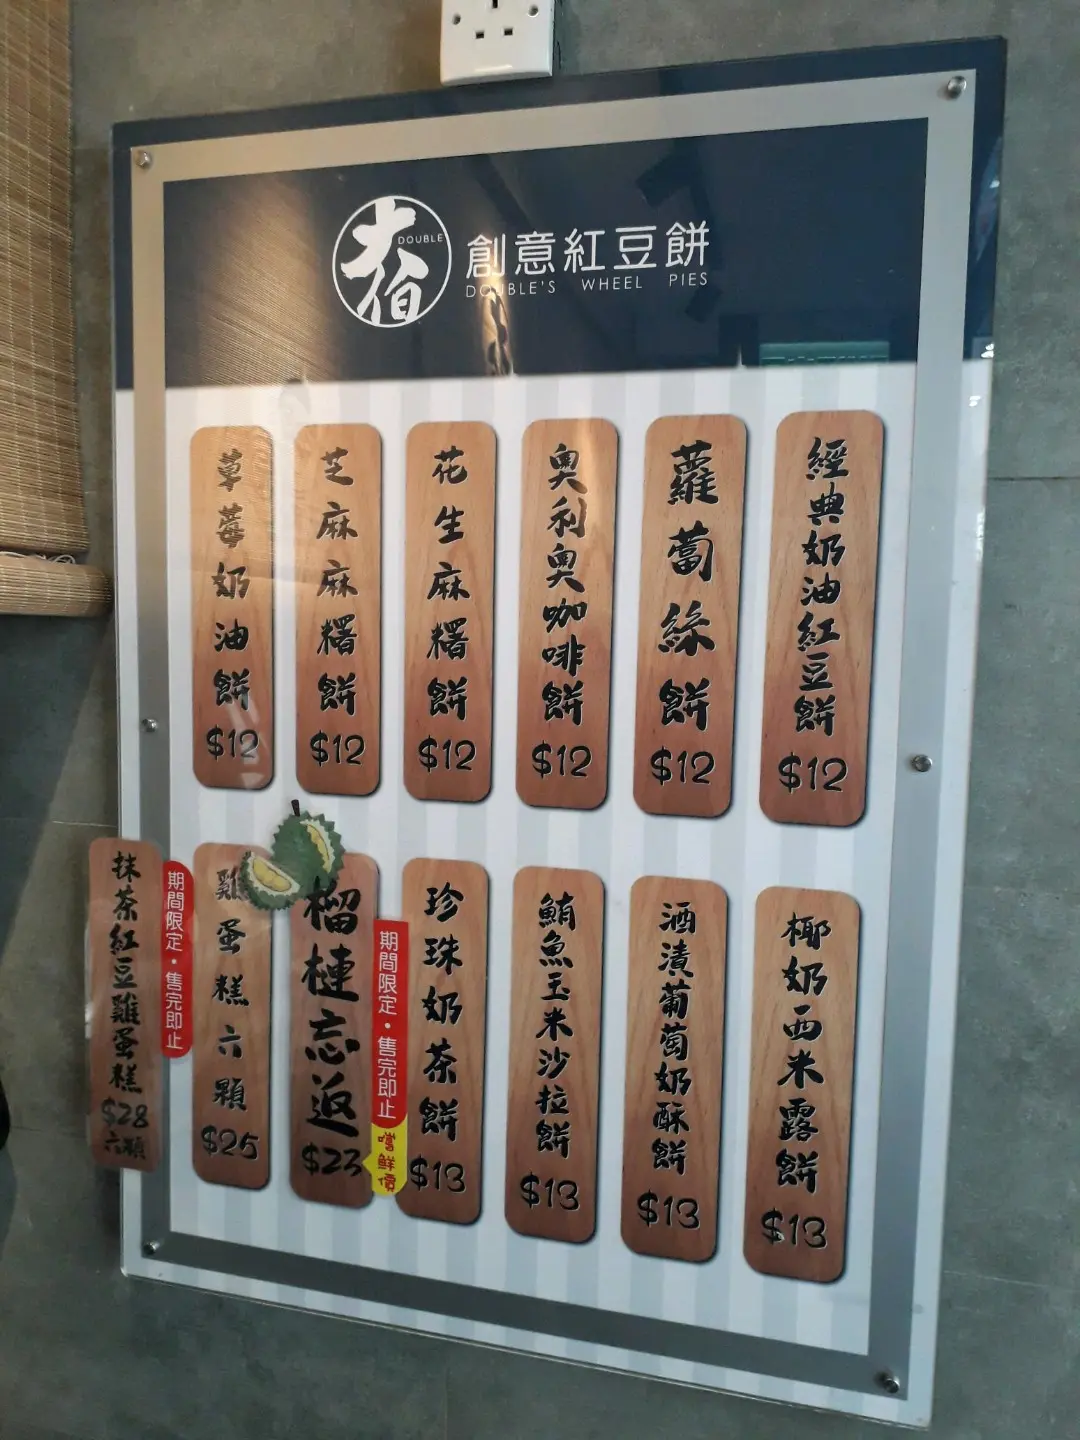 大伯
DOUBLE
創意紅豆餅
DOUBLE'S WHEEL PIES
經典奶油紅豆餅
$12
蘿蔔絲餅
$12
奧利奧咖啡餅
$12
花生麻糬餅
$12
芝麻麻糬餅
$12
草莓奶油餅
$12
椰奶西米露餅
$13
酒漬葡萄奶酥餅
$13
鮪魚玉米沙拉餅
$13
珍珠奶茶餅
$13
期間限定・售完即止
嚐鮮價
榴槤忘返
$23
雞蛋糕六顆
$25
期間限定・售完即止
抹茶紅豆雞蛋糕
$28
六顆